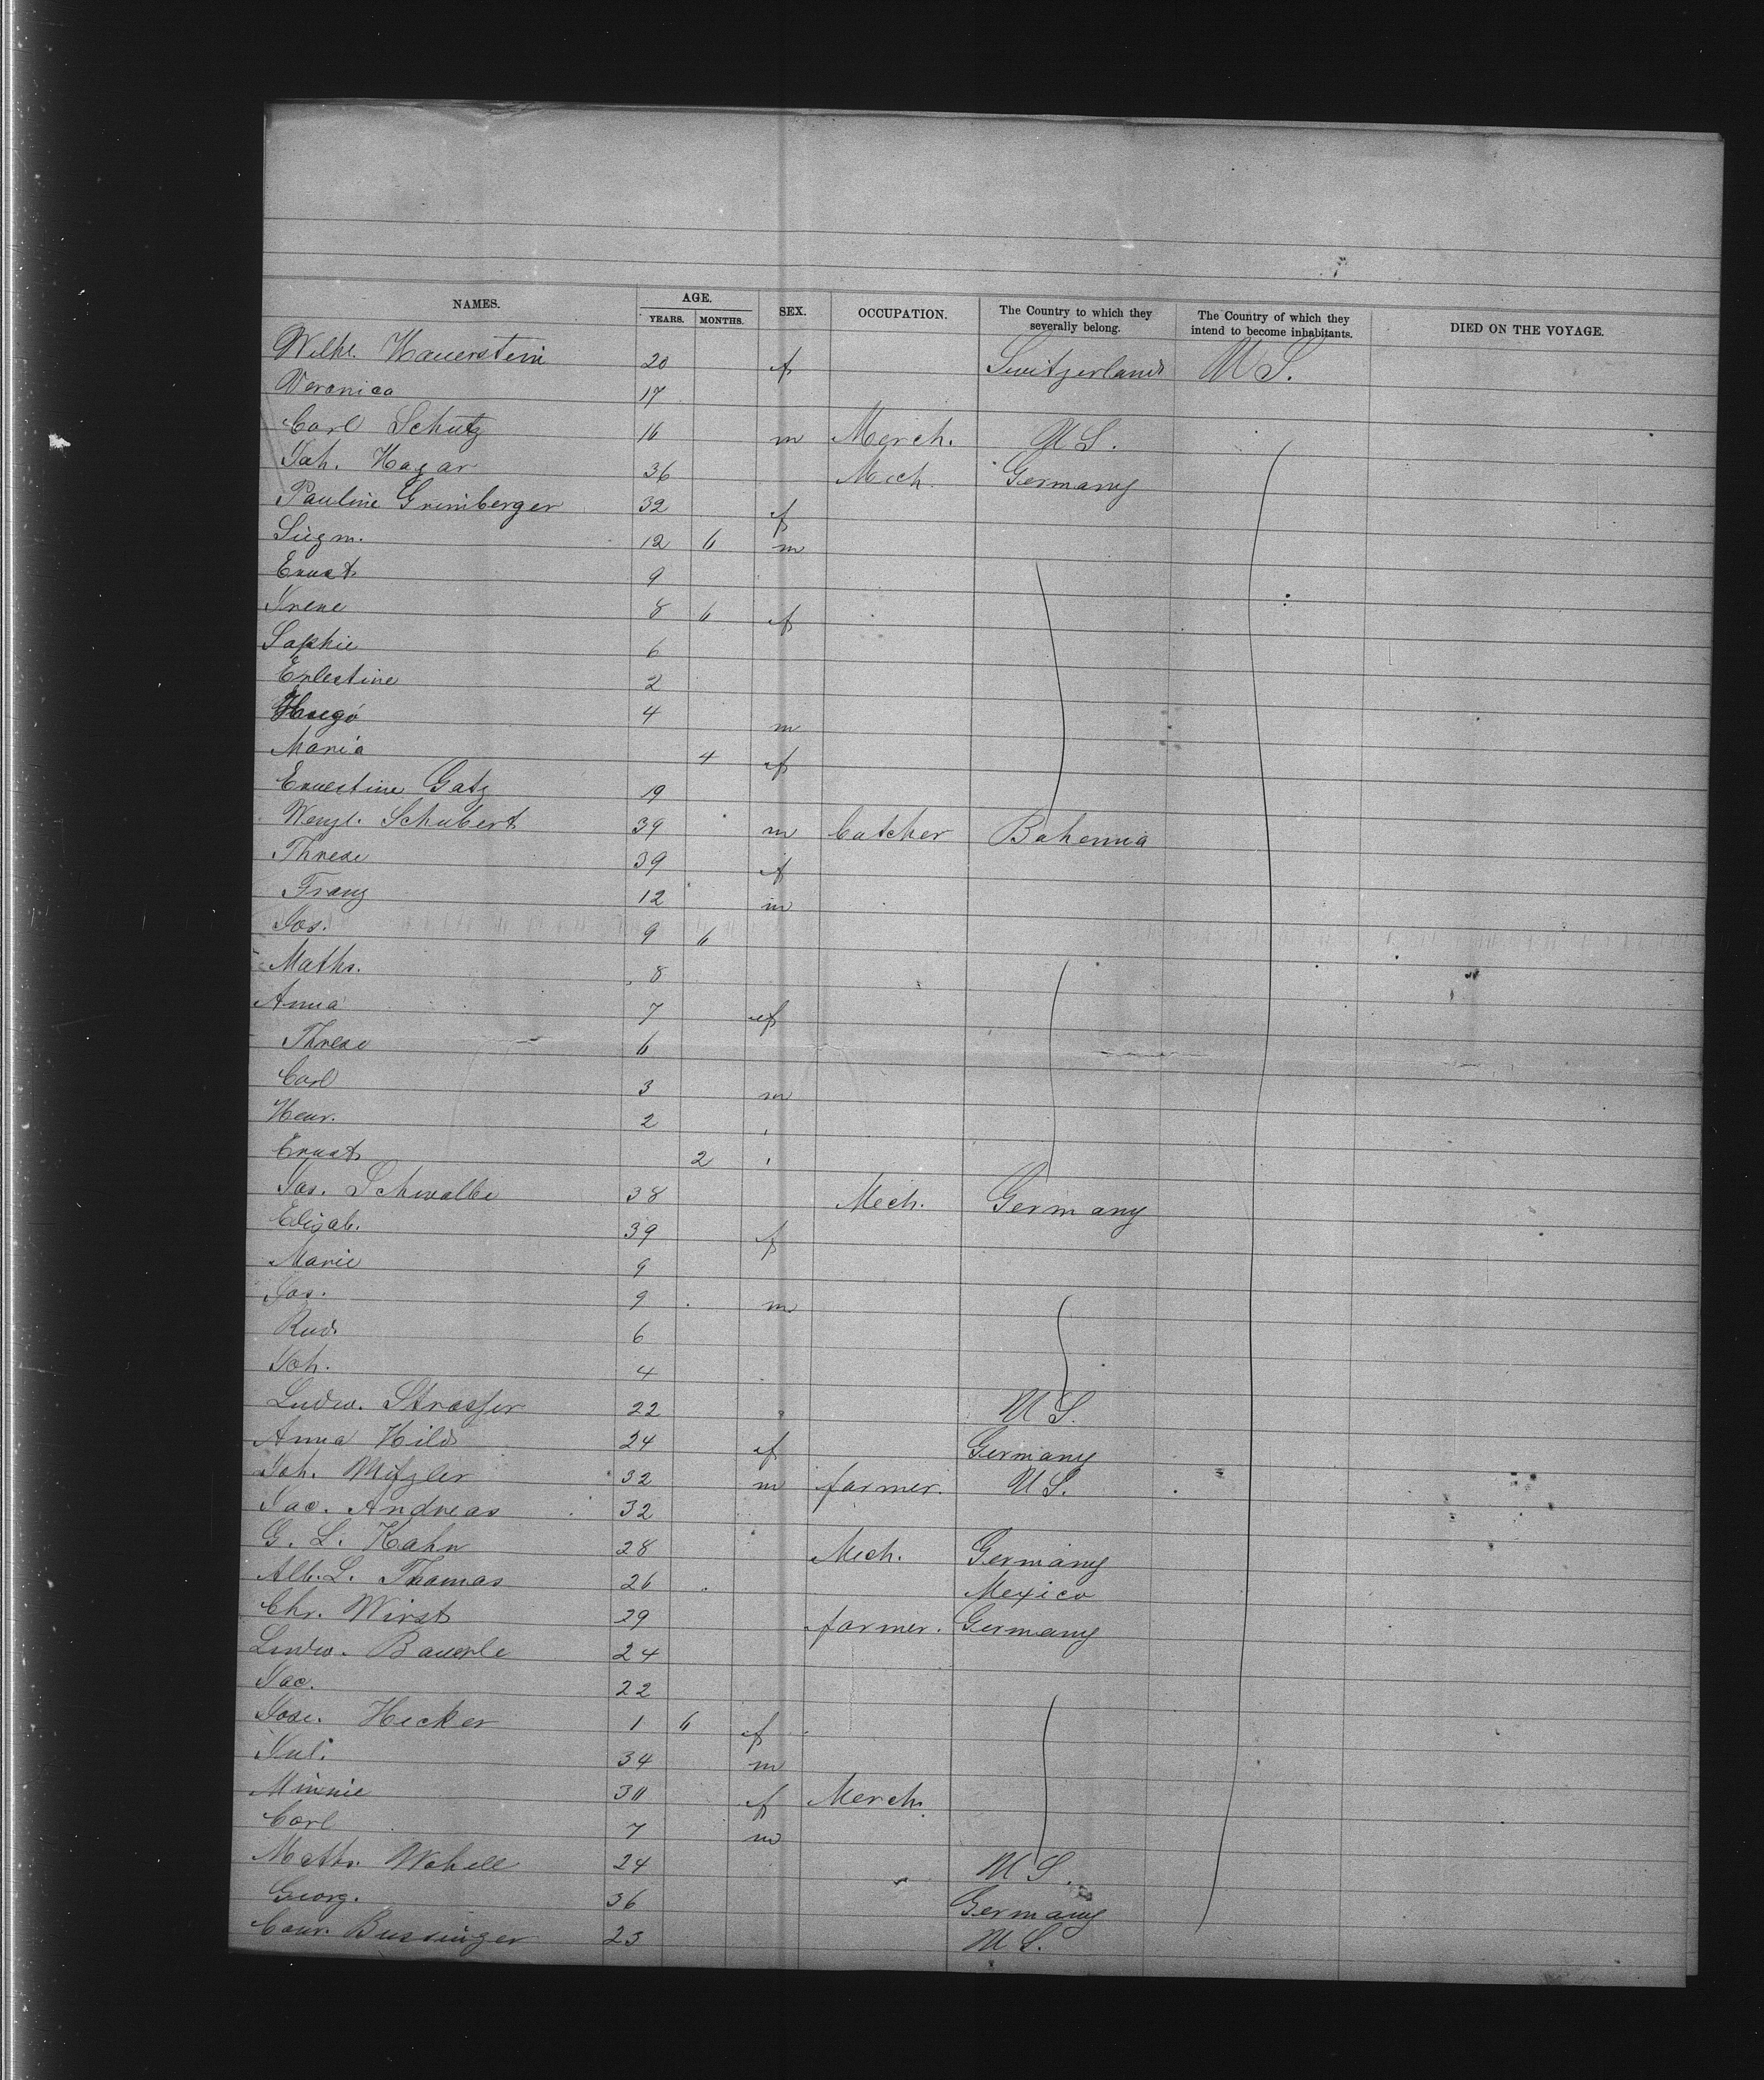 NAMES. AGE. YEARS. MONTHS. SEX. OCCUPATION. The Country to which they severally belong. The Country of which they intend to become inhabitants. DIED ON THE VOYAGE.
Wilhl. Hauerstein 20 f Switzerland U S.
Veronica 17
Carl Schutz 16 m Merch. U S.
Joh. Hagar 36 Mech. Germany
Pauline Grimberger 32 f
Siegm. 12 6 m
Ernst 9
Irene 8 6 f
Sophie 6
Enlestine 2
Hugo 4 m
Maria 4 f
Ernestine Gatz 19
Wenzl. Schubert 39 m butcher Bohemia
Threse 39 f
Franz 12 m
Jos. 9 6
Maths. 8
Anna 7 f
Threse 6
Carl 3 m
Henr. 2 '
Ernst 2 '
Jos. Schwalbe 38 Mech. Germany
Elisab. 39 f
Marie 9
Jos. 9 m
Rud. 6
Joh. 4
Ludw. Strasser 22 U S.
Anna Hild 24 f Germany
Joh. 32 m farmer. U S.
Jac. Andreas 32
G. L. Kahn 28 Mech. Germany
Alb. L. Thomas 26 Mexico
Chr. Wirst 29 farmer. Germany
Ludw. Bauerle 24
Jac. 22
Jose. Hecker 1 6 f
Jul. 34 m
Minnie 30 f Merch.
Carl 7 m
Maths. Wohell 24 U S.
Georg. 36 Germany
Conr. Bussinger 23 U S.